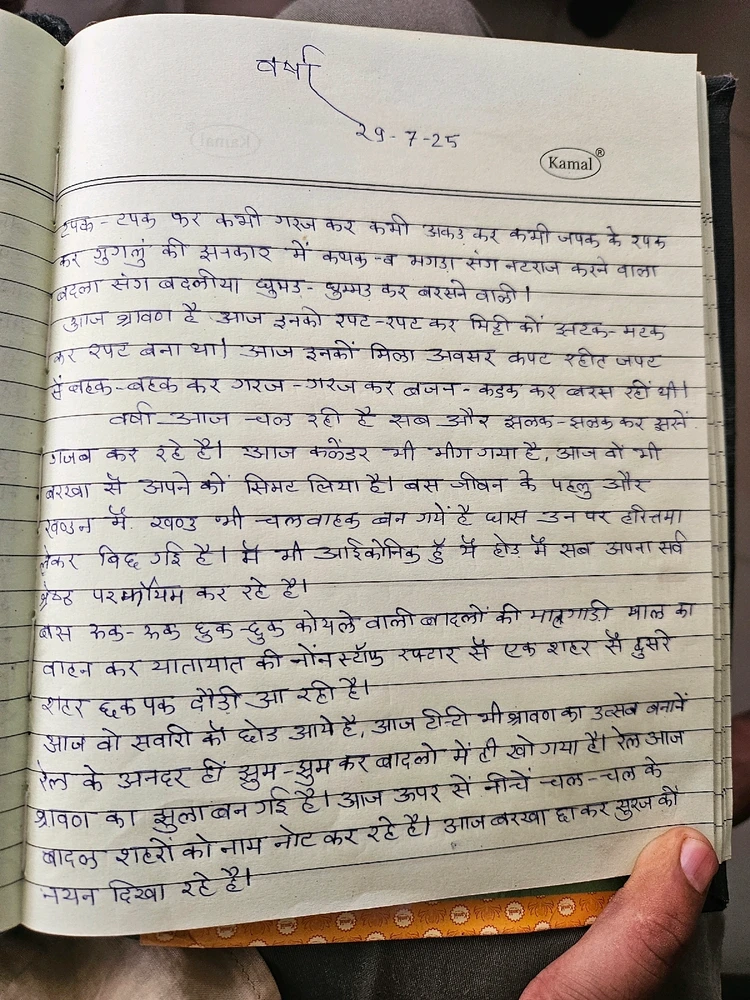 वर्षा
29-7-25
Kamal®
टपक-टपक कर कभी गरज कर कभी अकड कर कभी जपक के रपक
कर गुगलुं की झनकार में कथक-व भगडा संग नटराज करने वाला
बदला संग बदलीया घुमड-घुम्मड कर बरसने वाली।
आज श्रावण है आज इनको रपट-रपट कर मिट्टी कों झटक-मटक
कर रपट बना था। आज इनकों मिला अवसर कपट रहीत जपट
सें बहक-बहक कर गरज-गरज कर बजन-कडक कर बरस रहीं थी।
वर्षा आज चल रही है सब और झलक-झलक कर झरनें
गजब कर रहे है। आज कलेंडर भी भीग गया है, आज वों भी
बरखा सें अपने कों सिमट लिया है। बस जीवन के पहलु और
खण्डन में खण्ड भी चलवाहक बन गयें है घास उन पर हरितमा
लेकर बिछ गई है। में भी आईकोनिक हुँ ये होड में सब अपना सर्व
श्रेष्ठ परफोंयिम कर रहे है।
बस रूक-रूक छुक-छुक कोयले वाली बादलों की मालगाडी माल का
वाहन कर यातायात की नोंन स्टॉफ रफ्टार सें एक शहर सें दुसरे
शहर छक पक दौडी आ रही है।
आज वो सवारी कों छोड आये है, आज टी-टी भी श्रावण का उत्सव बनानें
रेल के अनदर हीं झुम-झुम कर बादलो में ही खो गया है। रेल आज
श्रावण का झुला बन गई है। आज ऊपर सें नीचें चल-चल के
बादल शहरों को नाम नोट कर रहे है। आज बरखा छा कर सुरज कों
नयन दिखा रहे है।